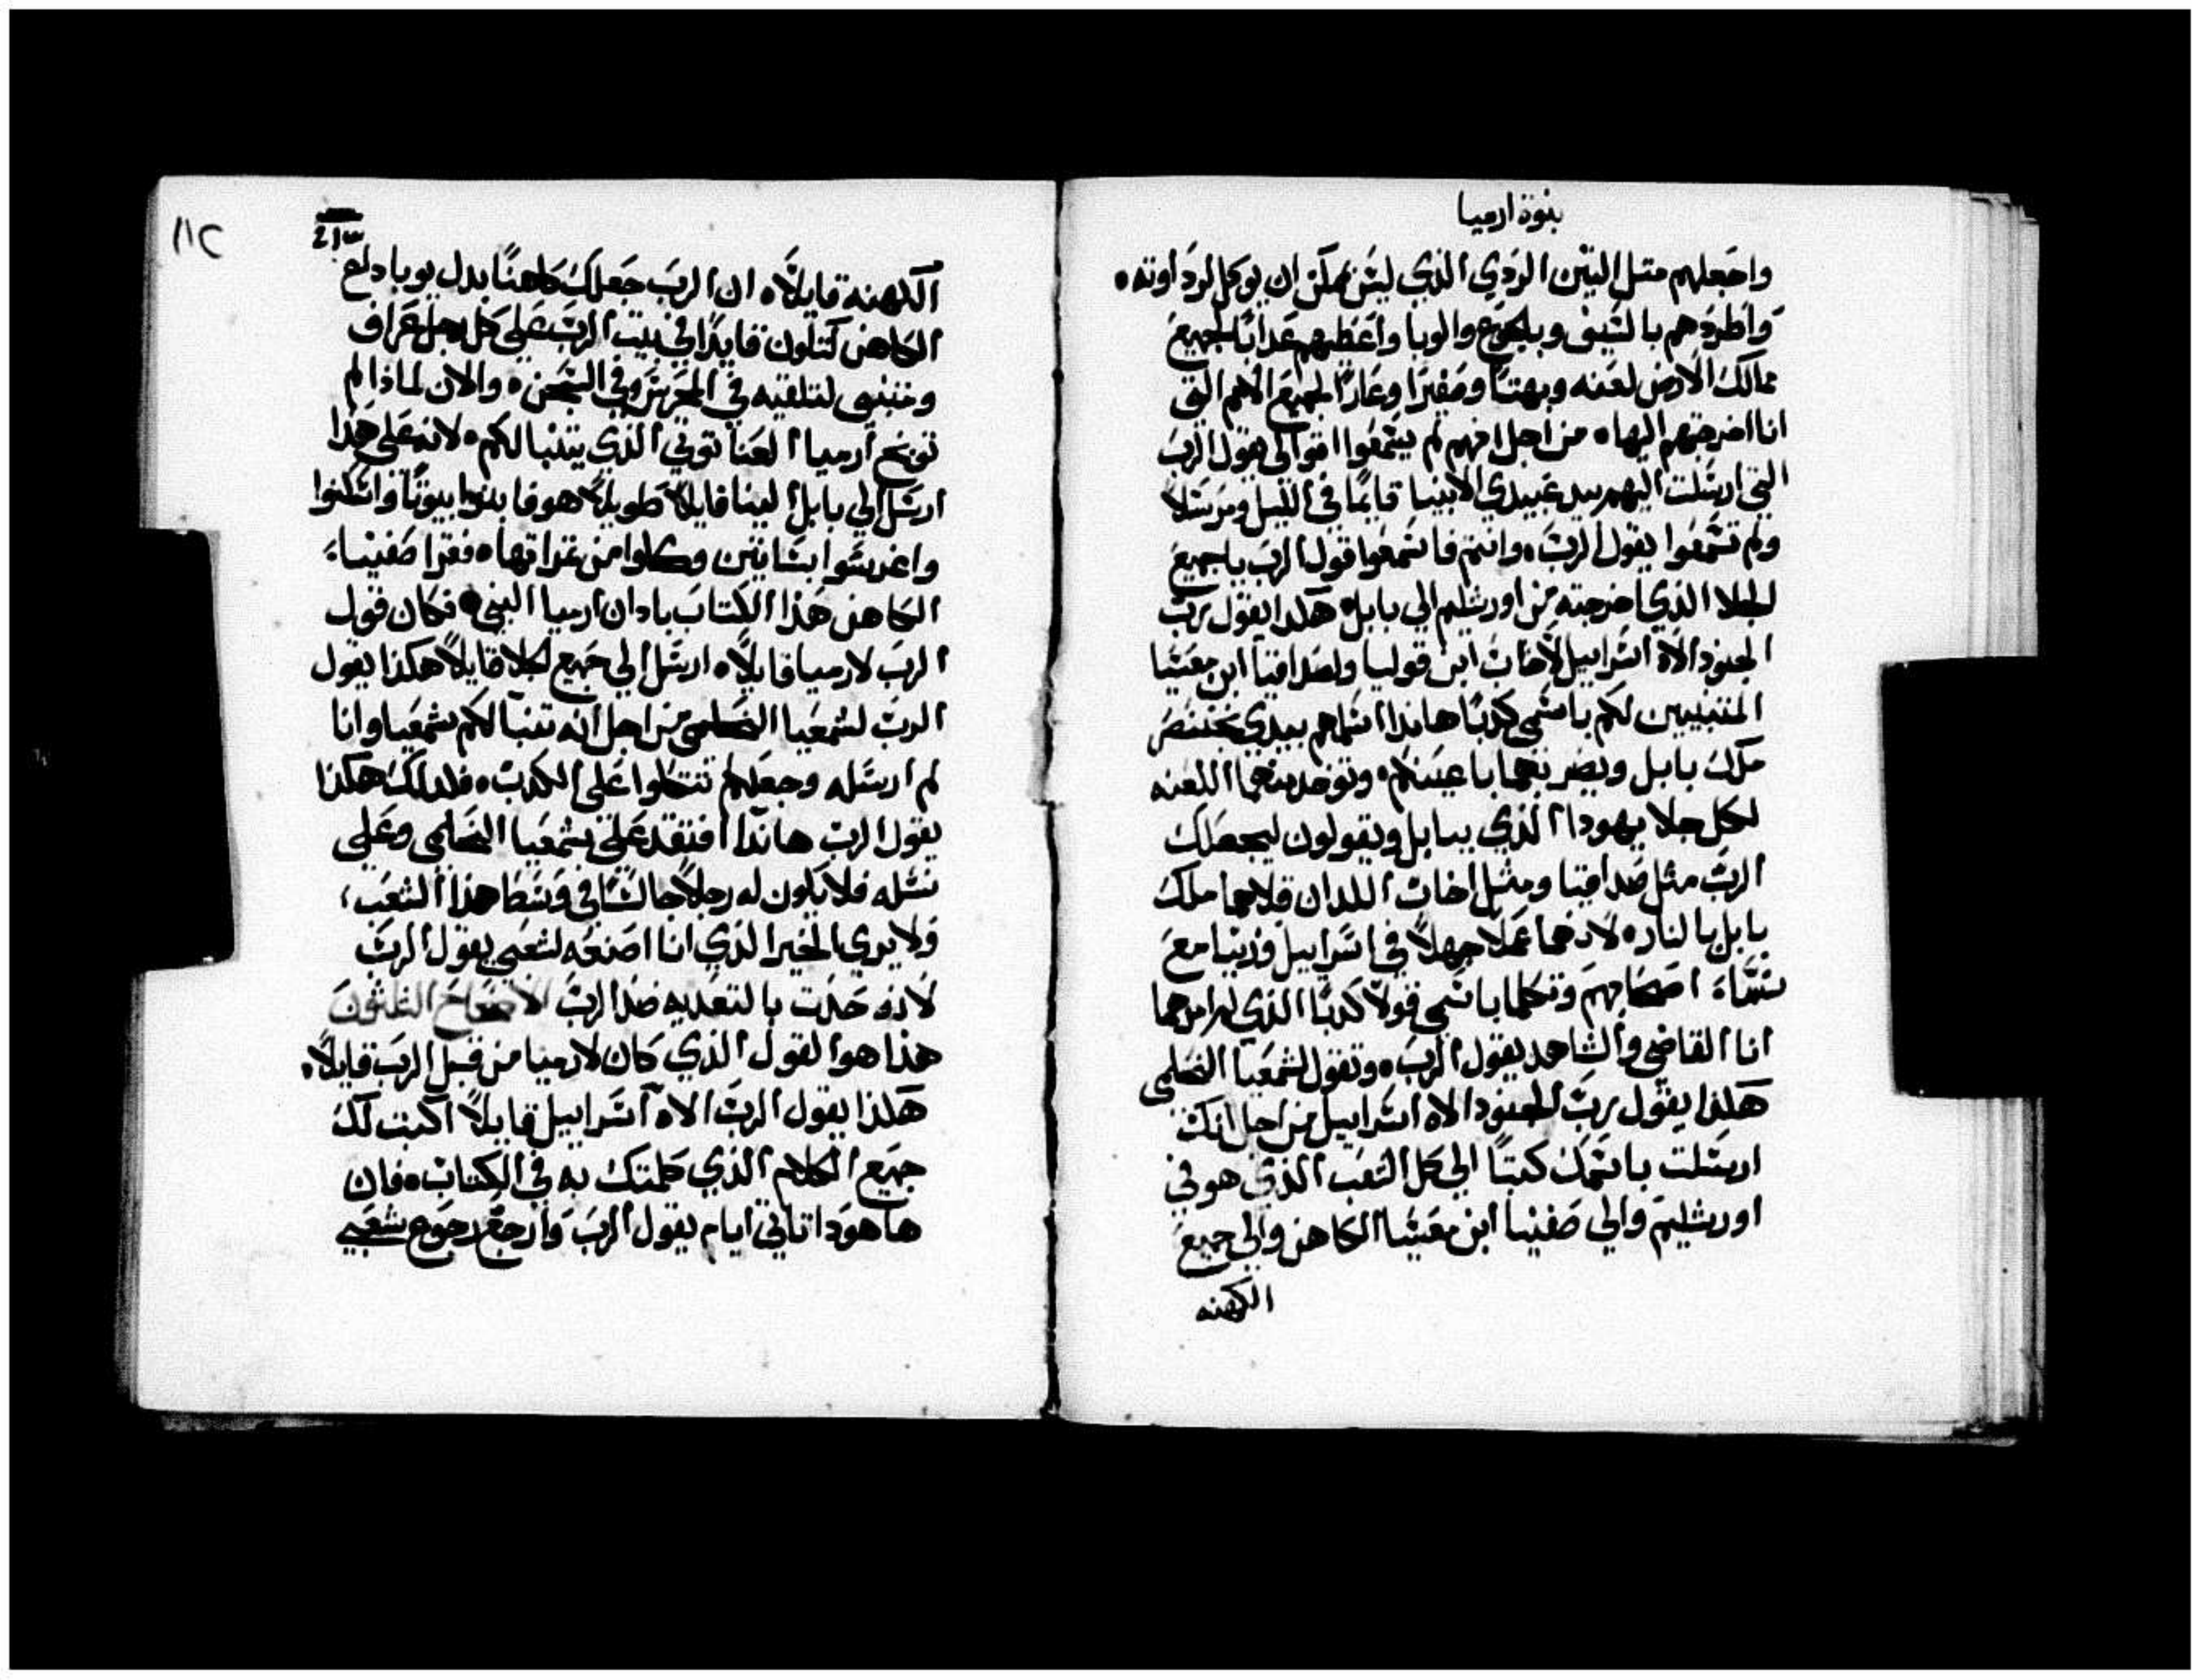 بنوة ارميا
واجعلهم متل التين الردي الذي ليس يمكن ان يوكل لرداوته
واطردهم بالسيف وبالجوع والوبا واعطيهم عدابًا لجميع
ممالك الارض لعنه وبهتًا وصفيرًا وعارًا لجميع الامم التي
انا اخرجتهم اليها من اجل انهم لم يسمعوا اقوالي يقول الرب
التي ارسلت اليهم بيد عبيدي الانبيا قايمًا في الليل ومرسلاً
ولم تسمعوا يقول الرب وانتم فاسمعوا قول الرب يا جميع
الجلا الذي اخرجته من اورشليم الي بابل هكدا يقول رب
الجنود الاه اسراييل لاخاب ابن قوليا ولصدافيا ابن معسيا
المتنبيين لكم باسمي كدبًا هاندا اسلمهم بيدي بختنصر
ملك بابل ويضربهما باعينكم وتوخد منهما اللعنه
لكل جلا يهودا الذي ببابل ويقولون ليجعلك
الرب مثل صدافيا ومثل اخاب اللدان قلاهما ملك
بابل بالنار لانهما عملا جهلاً في اسراييل وزنيا مع
نساء اصحابهم وتكلما باسمي قولاً كدبًا الذي لم امرهما
انا القاضي والشاهد يقول الرب وتقول لشمعيا النحلمي
هكذا يقول رب الجنود الاه اسراييل من اجل انك
ارسلت باسمك كتبًا الي كل الشعب الذي هو في
اورشليم والي صفنيا ابن معسيا الكاهن والي جميع
الكهنه
١١٢
الكهنه قايلاً ان الرب جعلك كاهنًا بدل يوياداع
الكاهن لتكون قايدًا في بيت الرب علي كل رجل عراف
ومتنبي لتلقيه في المحرس وفي السجن والان لماذا لم
توبخ ارميا العناتوتي الذي يتنبا لكم لانه علي هذا
ارسل الي بابل الينا قايلاً طويلاً هو فابنوا بيوتًا واسكنوا
واغرسوا بساتين وكلوا من ثمراتها فقرا صفنيا
الكاهن هذا الكتاب بادان ارميا النبي فكان قول
الرب لارميا قايلاً ارسل الي جميع الجلا قايلاً هكذا يقول
الرب لشمعيا النحلمي من اجل انه تنبا لكم شمعيا وانا
لم ارسله وجعلكم تتكلوا علي الكدب فلدلك هكذا
يقول الرب هاندا افتقد علي شمعيا النحلمي وعلي
نسله فلا يكون له رجلاً جالسًا في وسط هذا الشعب
ولا يري الخير الذي انا اصنعه لشعبي يقول الرب
لانه حدت بالتعديه ضد الرب الاصحاح الثلثون
هذا هو القول الذي كان لارميا من قبل الرب قايلاً
هكذا يقول الرب الاه اسراييل قايلاً اكتب لك
جميع الكلام الذي كلمتك به في الكتاب فان
ها هوذا تاتي ايام يقول الرب وارجع رجوع شعبي